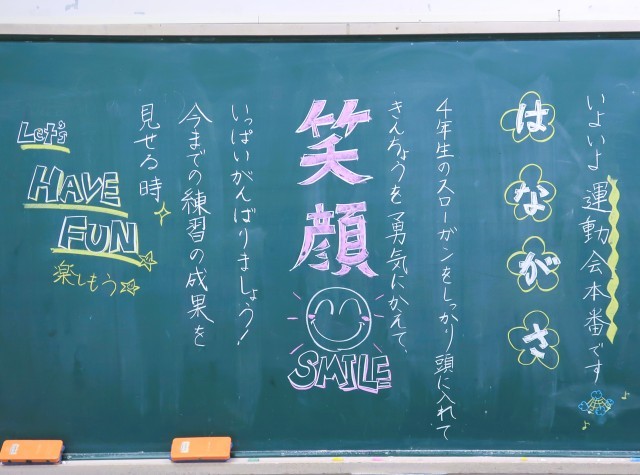 いよいよ運動会本番です
はながさ
4年生のスローガンをしっかり頭に入れて
きんちょうを勇気にかえて、
笑顔
SMILE
いっぱいがんばりましょう!
今までの練習の成果を
見せる時
Let's
HAVE
FUN
楽しもう